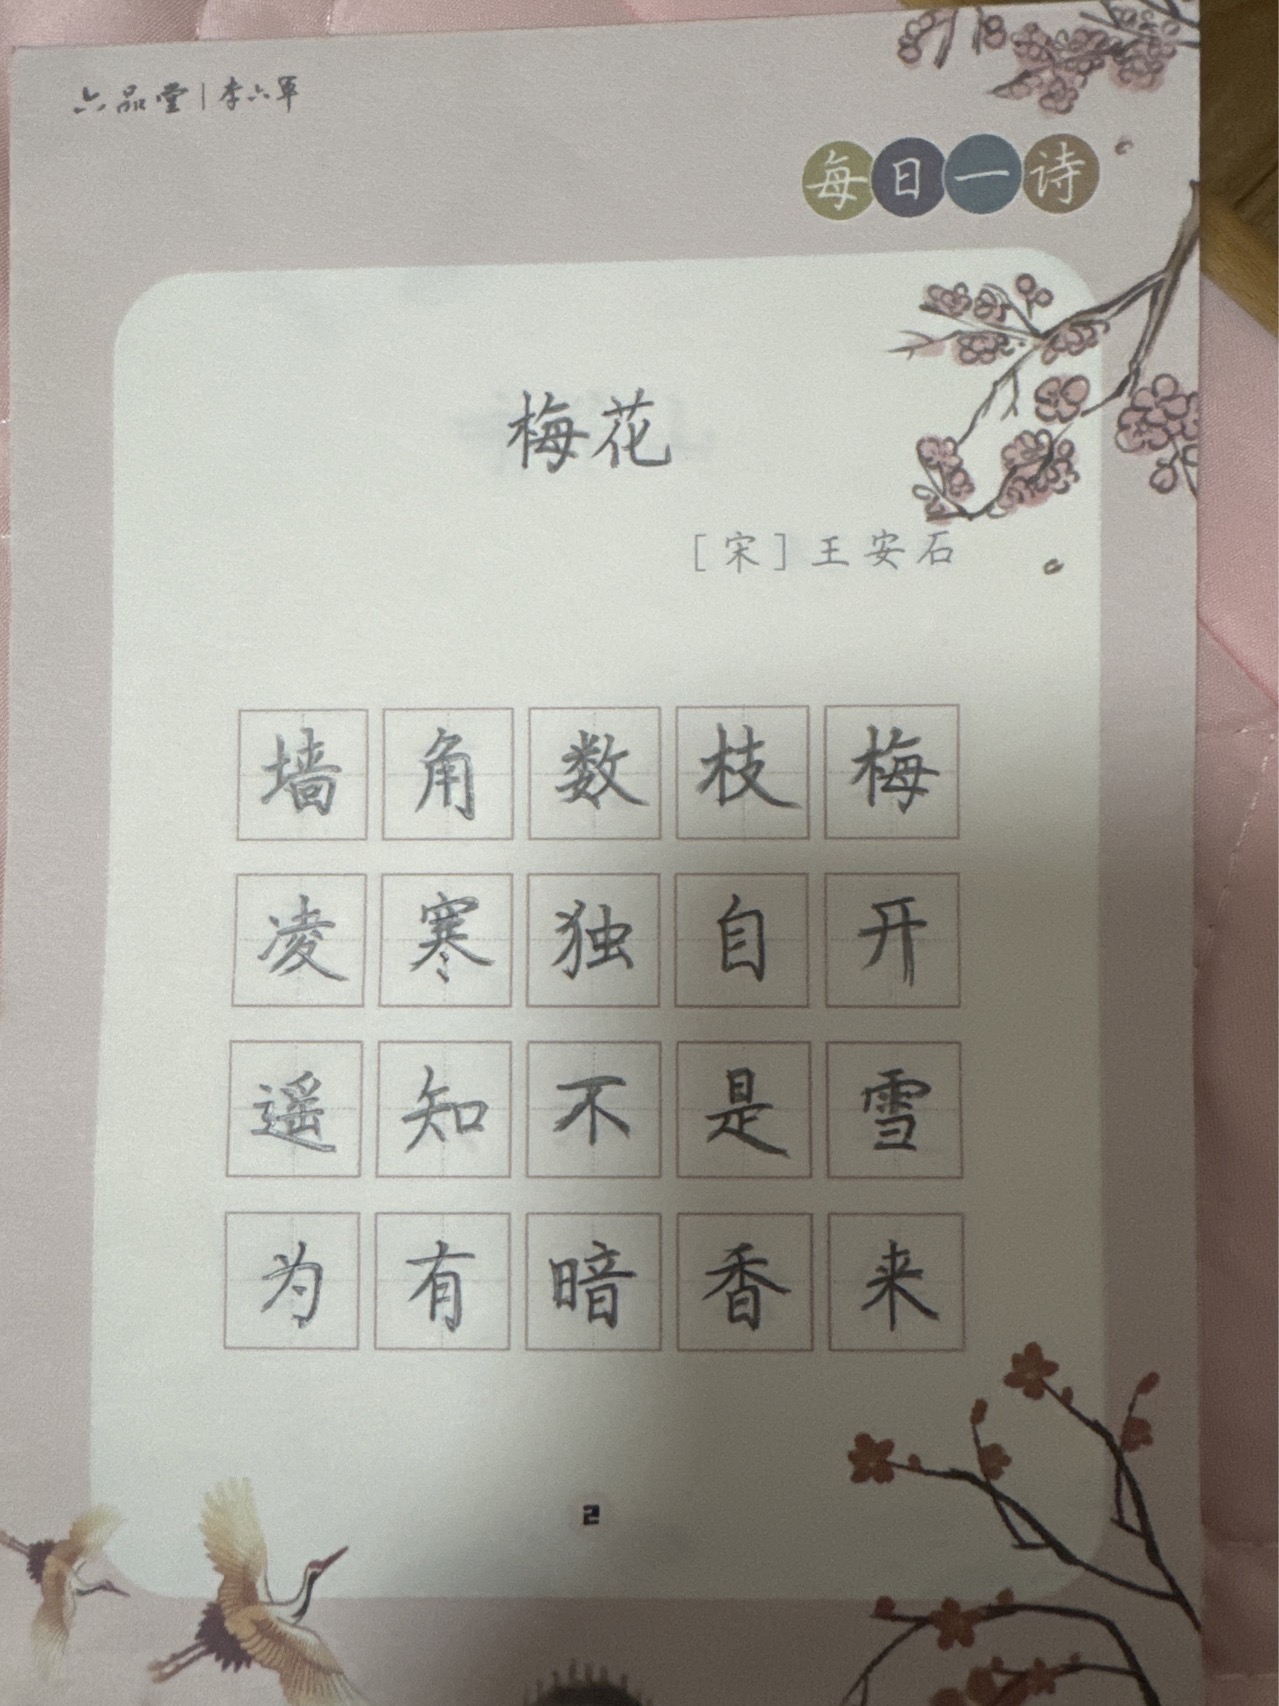 六品堂|李六軍
每日一诗
梅花
[宋]王安石
墙角数枝梅
凌寒独自开
遥知不是雪
为有暗香来
2